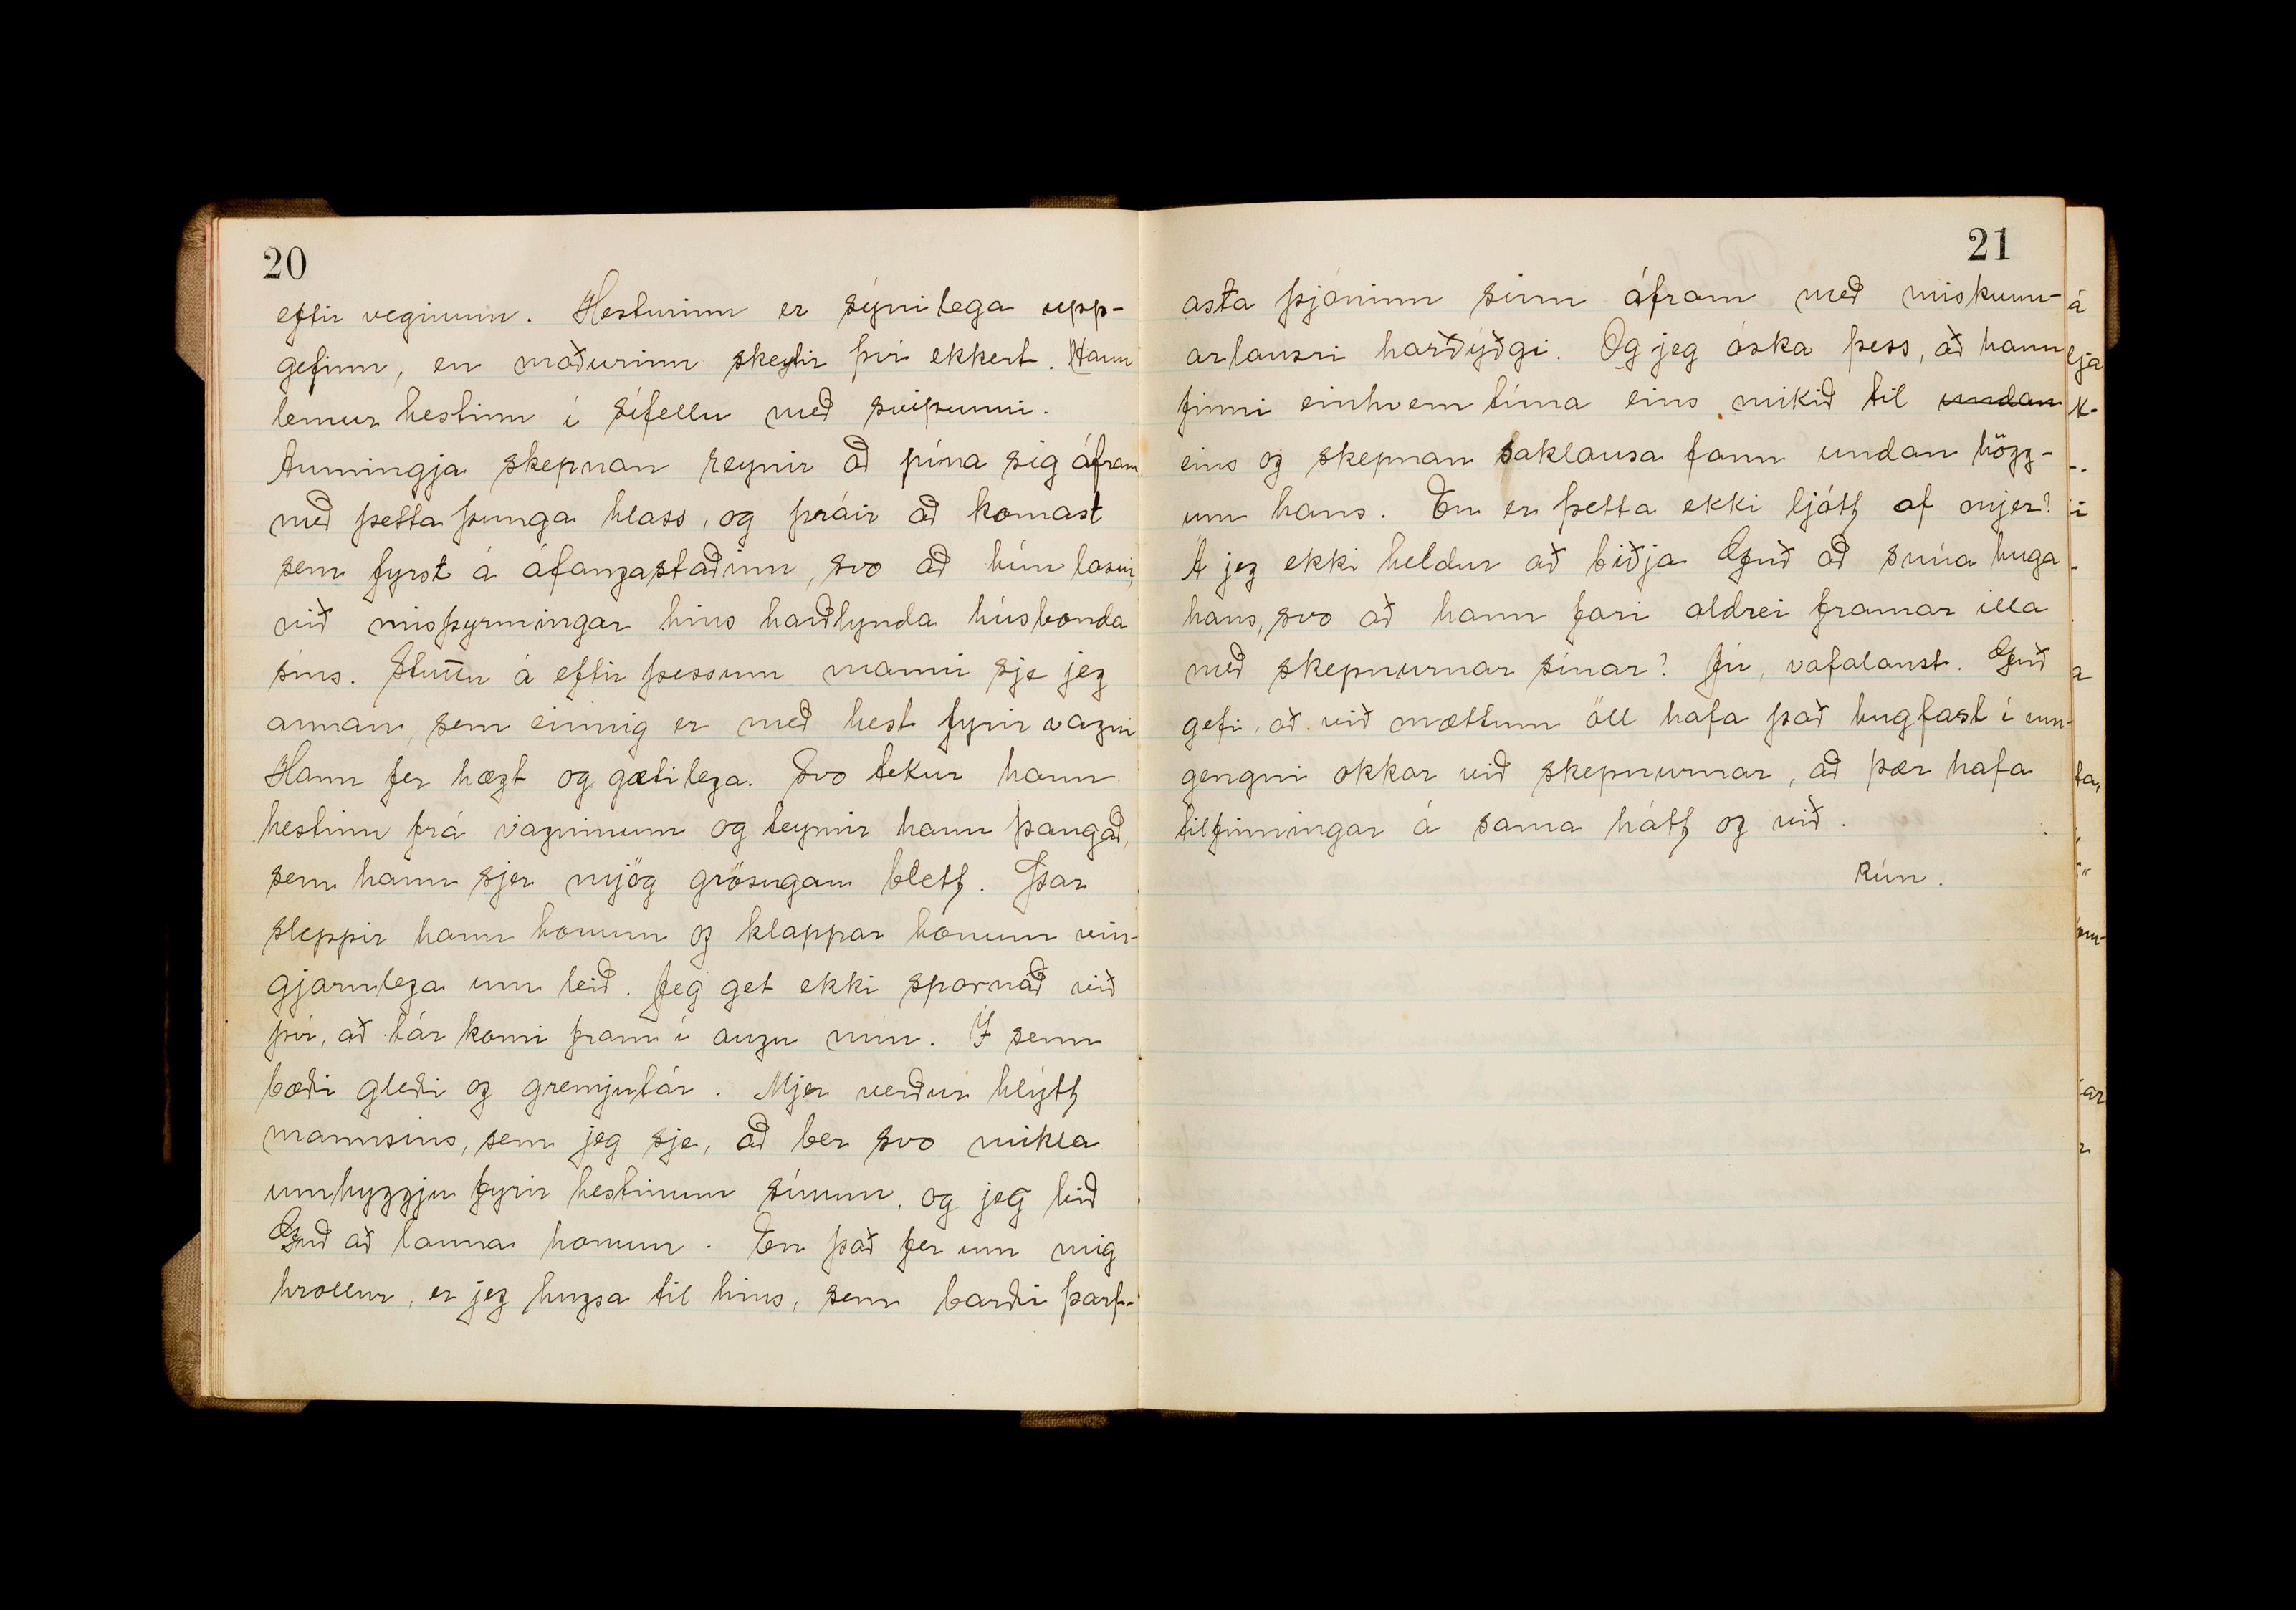 20
eftir veginum. Hesturinn er sýnilega upp-
gefinn, en maðurinn skeytir því ekkert. Hann
lemur hestinn í sífellu með svipunni.
Aumingja skepnan reynir að pína sig áfram
með þetta þunga hlass, og þráir að komast
sem fyrst á áfangastaðinn, svo að hún losni
við misþyrmingar hins harðlynda húsbonda
síns. Stuttu á eftir þessum manni sje jeg
annan, sem einnig er með hest fyrir vagni
Hann fer hægt og gætilega. Svo tekur hann
hestinn frá vagninum og teymir hann þangað,
sem hann sjer mjög grösugan blett. Þar
sleppir hann honum og klappar honum vin-
gjarnlega um leið. Jeg get ekki spornað við
því, að tár komi fram í augu mín. Í senn
bæði gleði og gremjutár. Mjer verður hlýtt
mannsins, sem jeg sje, að ber svo mikla
umhyggju fyrir hestinum sínum, og jeg bið
Guð að launa honum. En það fer um mig
hrollur, er jeg hugsa til hins, sem barði þarf-
21
asta þjóninn sinn áfram með miskunn-
arlausri harðýðgi. Og jeg óska þess, að hann
finni einhvern tíma eins mikið til undan
eins og skepnan saklausa fann undan högg-
um hans. En er þetta ekki ljótt af mjer?
Á jeg ekki heldur að biðja Guð að snúa huga
hans, svo að hann fari aldrei framar illa
með skepnurnar sínar? Jú, vafalaust. Guð
gefi, að við mættum öll hafa það hugfast í um-
gengni okkar við skepnurnar, að þær hafa
tilfinningar á sama hátt og við.
Rún.